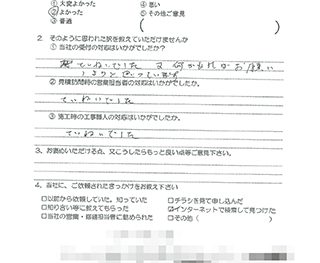 ① 大変よかった ④ 悪い
② よかった ⑤ その他ご意見
③ 普通 ( )
2. そのように思われた訳を教えていただけませんか
① 当社の受付の対応はいかがでしたか?
ていねいでした 又何かあれがお願い
しようと思っています
② 見積訪問時の営業担当者の対応はいかがでしたか。
ていねいでした
③ 施工時の工事職人の対応はいかがでしたか。
ていねいでした
3. お褒めいただける点、又こうしたらもっと良い点等ご意見下さい。
4. 当社に、ご依頼されたきっかけをお教え下さい
□以前から依頼していた。知っていた □チラシを見て申し込んだ
□知り合い等に教えてもらった ☑インターネットで検索して見つけた
□当社の営業・店舗担当者に勧められた □その他 ( )